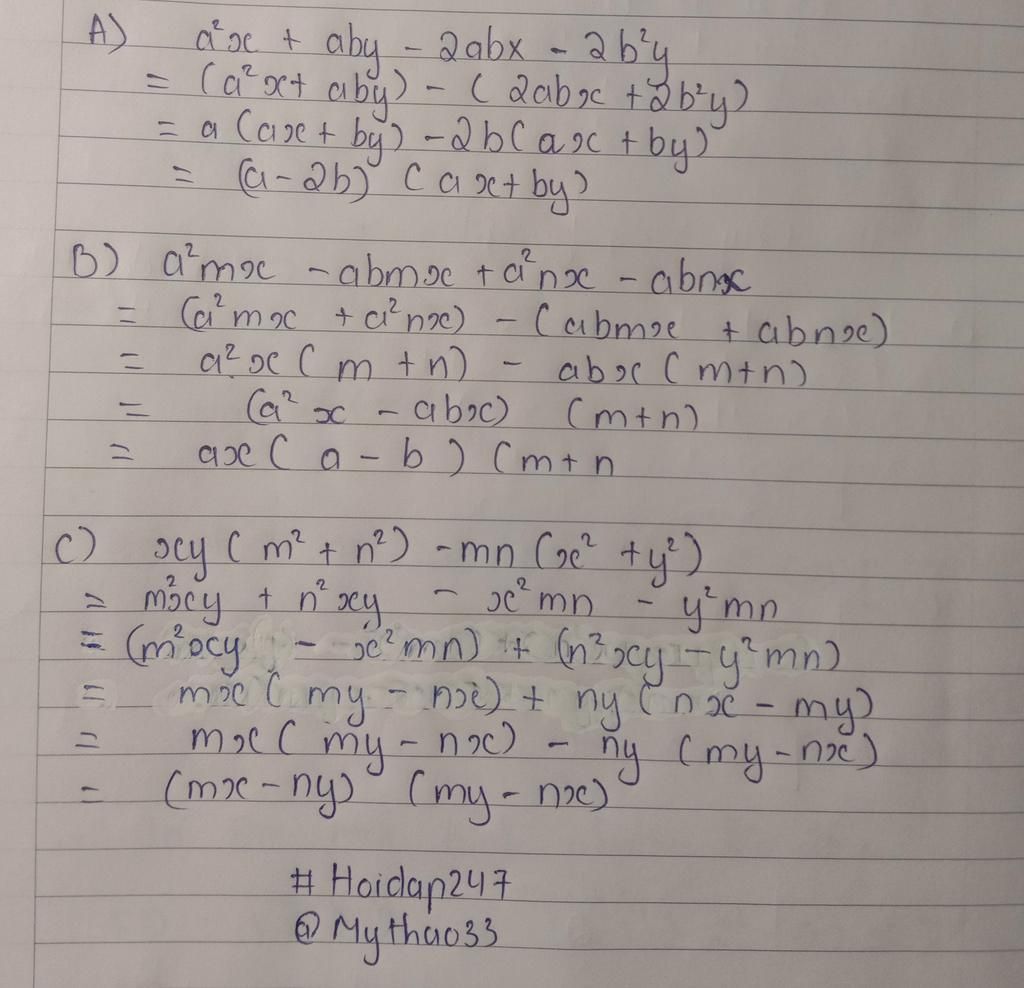 A) a²x + aby - 2abx - 2b²y
= (a²x + aby) - (2abx + 2b²y)
= a (ax + by) - 2b (ax + by)
= (a - 2b) (ax + by)
B) a²mx - abmx + a²nx - abnx
= (a²mx + a²nx) - (abmx + abnx)
= a²x (m + n) - abx (m + n)
= (a²x - abx) (m + n)
= ax (a - b) (m + n
C) xy (m² + n²) - mn (x² + y²)
= m²xy + n²xy - x²mn - y²mn
= (m²xy - x²mn) + (n²xy - y²mn)
= mx (my - nx) + ny (nx - my)
= mx (my - nx) - ny (my - nx)
= (mx - ny) (my - nx)
# Hoidap247
@Mythao33